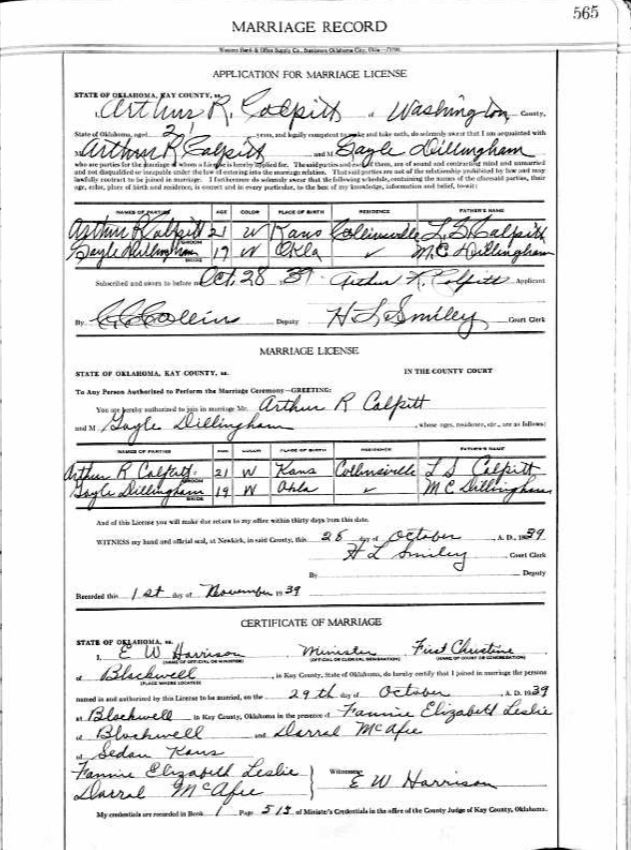 565
MARRIAGE RECORD
APPLICATION FOR MARRIAGE LICENSE
STATE OF OKLAHOMA, KAY COUNTY, ss.
I, Arthur R. Colpitt of Washington County,
State of Oklahoma, aged 21 years, and legally competent to make and take oath, do solemnly swear that I am acquainted with
M Arthur R Colpitt and M Gayle Dillingham
who are parties for the marriage of whom a License is hereby applied for. The said parties and each of them, are of sound and contracting mind and unmarried
and not disqualified or incapable under the law of entering into the marriage relation. That said parties are not of the relationship prohibited by law and may
lawfully contract to be joined in marriage. I furthermore do solemnly swear that the following schedule, containing the names of the aforesaid parties, their
age, color, place of birth and residence, is correct and in every particular, to the best of my knowledge, information and belief, to-wit:
NAMES OF PARTIES AGE COLOR PLACE OF BIRTH RESIDENCE FATHER'S NAME
Arthur R Colpitt GROOM 21 W Kans Collinsville L. S. Colpitt
Gayle Dillingham BRIDE 19 W Okla ✓ M. C. Dillingham
Subscribed and sworn to before me Oct. 28 39 Arthur R. Colpitt Applicant
By C C Collins Deputy H L Smiley Court Clerk
MARRIAGE LICENSE
STATE OF OKLAHOMA, KAY COUNTY, ss. IN THE COUNTY COURT
To Any Person Authorized to Perform the Marriage Ceremony—GREETING:
You are hereby authorized to join in marriage Mr. Arthur R Colpitt
and M Gayle Dillingham , whose ages, residence, etc., are as follows:
NAMES OF PARTIES AGE COLOR PLACE OF BIRTH RESIDENCE FATHER'S NAME
Arthur R Colpitt GROOM 21 W Kans Collinsville L S Colpitt
Gayle Dillingham BRIDE 19 W Okla ✓ M C Dillingham
And of this License you will make due return to my office within thirty days from this date.
WITNESS my hand and official seal, at Newkirk, in said County, this 28 day of October , A. D., 1939
H L Smiley , Court Clerk
By Deputy
Recorded this 1st day of November 1939
CERTIFICATE OF MARRIAGE
STATE OF OKLAHOMA, ss.
I, E W Harrison , Minister , First Christine
(NAME OF OFFICIAL OR MINISTER) (OFFICIAL OR CLERICAL DESIGNATION) (NAME OF COURT OR CONGREGATION)
of Blackwell , in Kay County, State of Oklahoma, do hereby certify that I joined in marriage the persons
(PLACE WHERE LOCATED)
named in and authorized by this License to be married, on the 29th day of October , A. D. 1939
at Blackwell in Kay County, Oklahoma in the presence of Fannie Elizabeth Leslie
of Blackwell and Darral McAfee
of Sedan Kans
Fannie Elizabeth Leslie
Darral McAfee } Witnesses E W Harrison
My credentials are recorded in Book 1 Page 513 of Ministe's Credentials in the office of the County Judge of Kay County, Oklahoma.